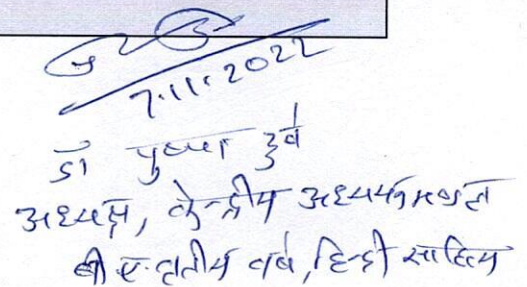 7.11.2022
डॉ पुष्पा दुबे
अध्यक्ष, केन्द्रीय अध्ययनमण्डल
बी ए. तृतीय वर्ष, हिन्दी साहित्य